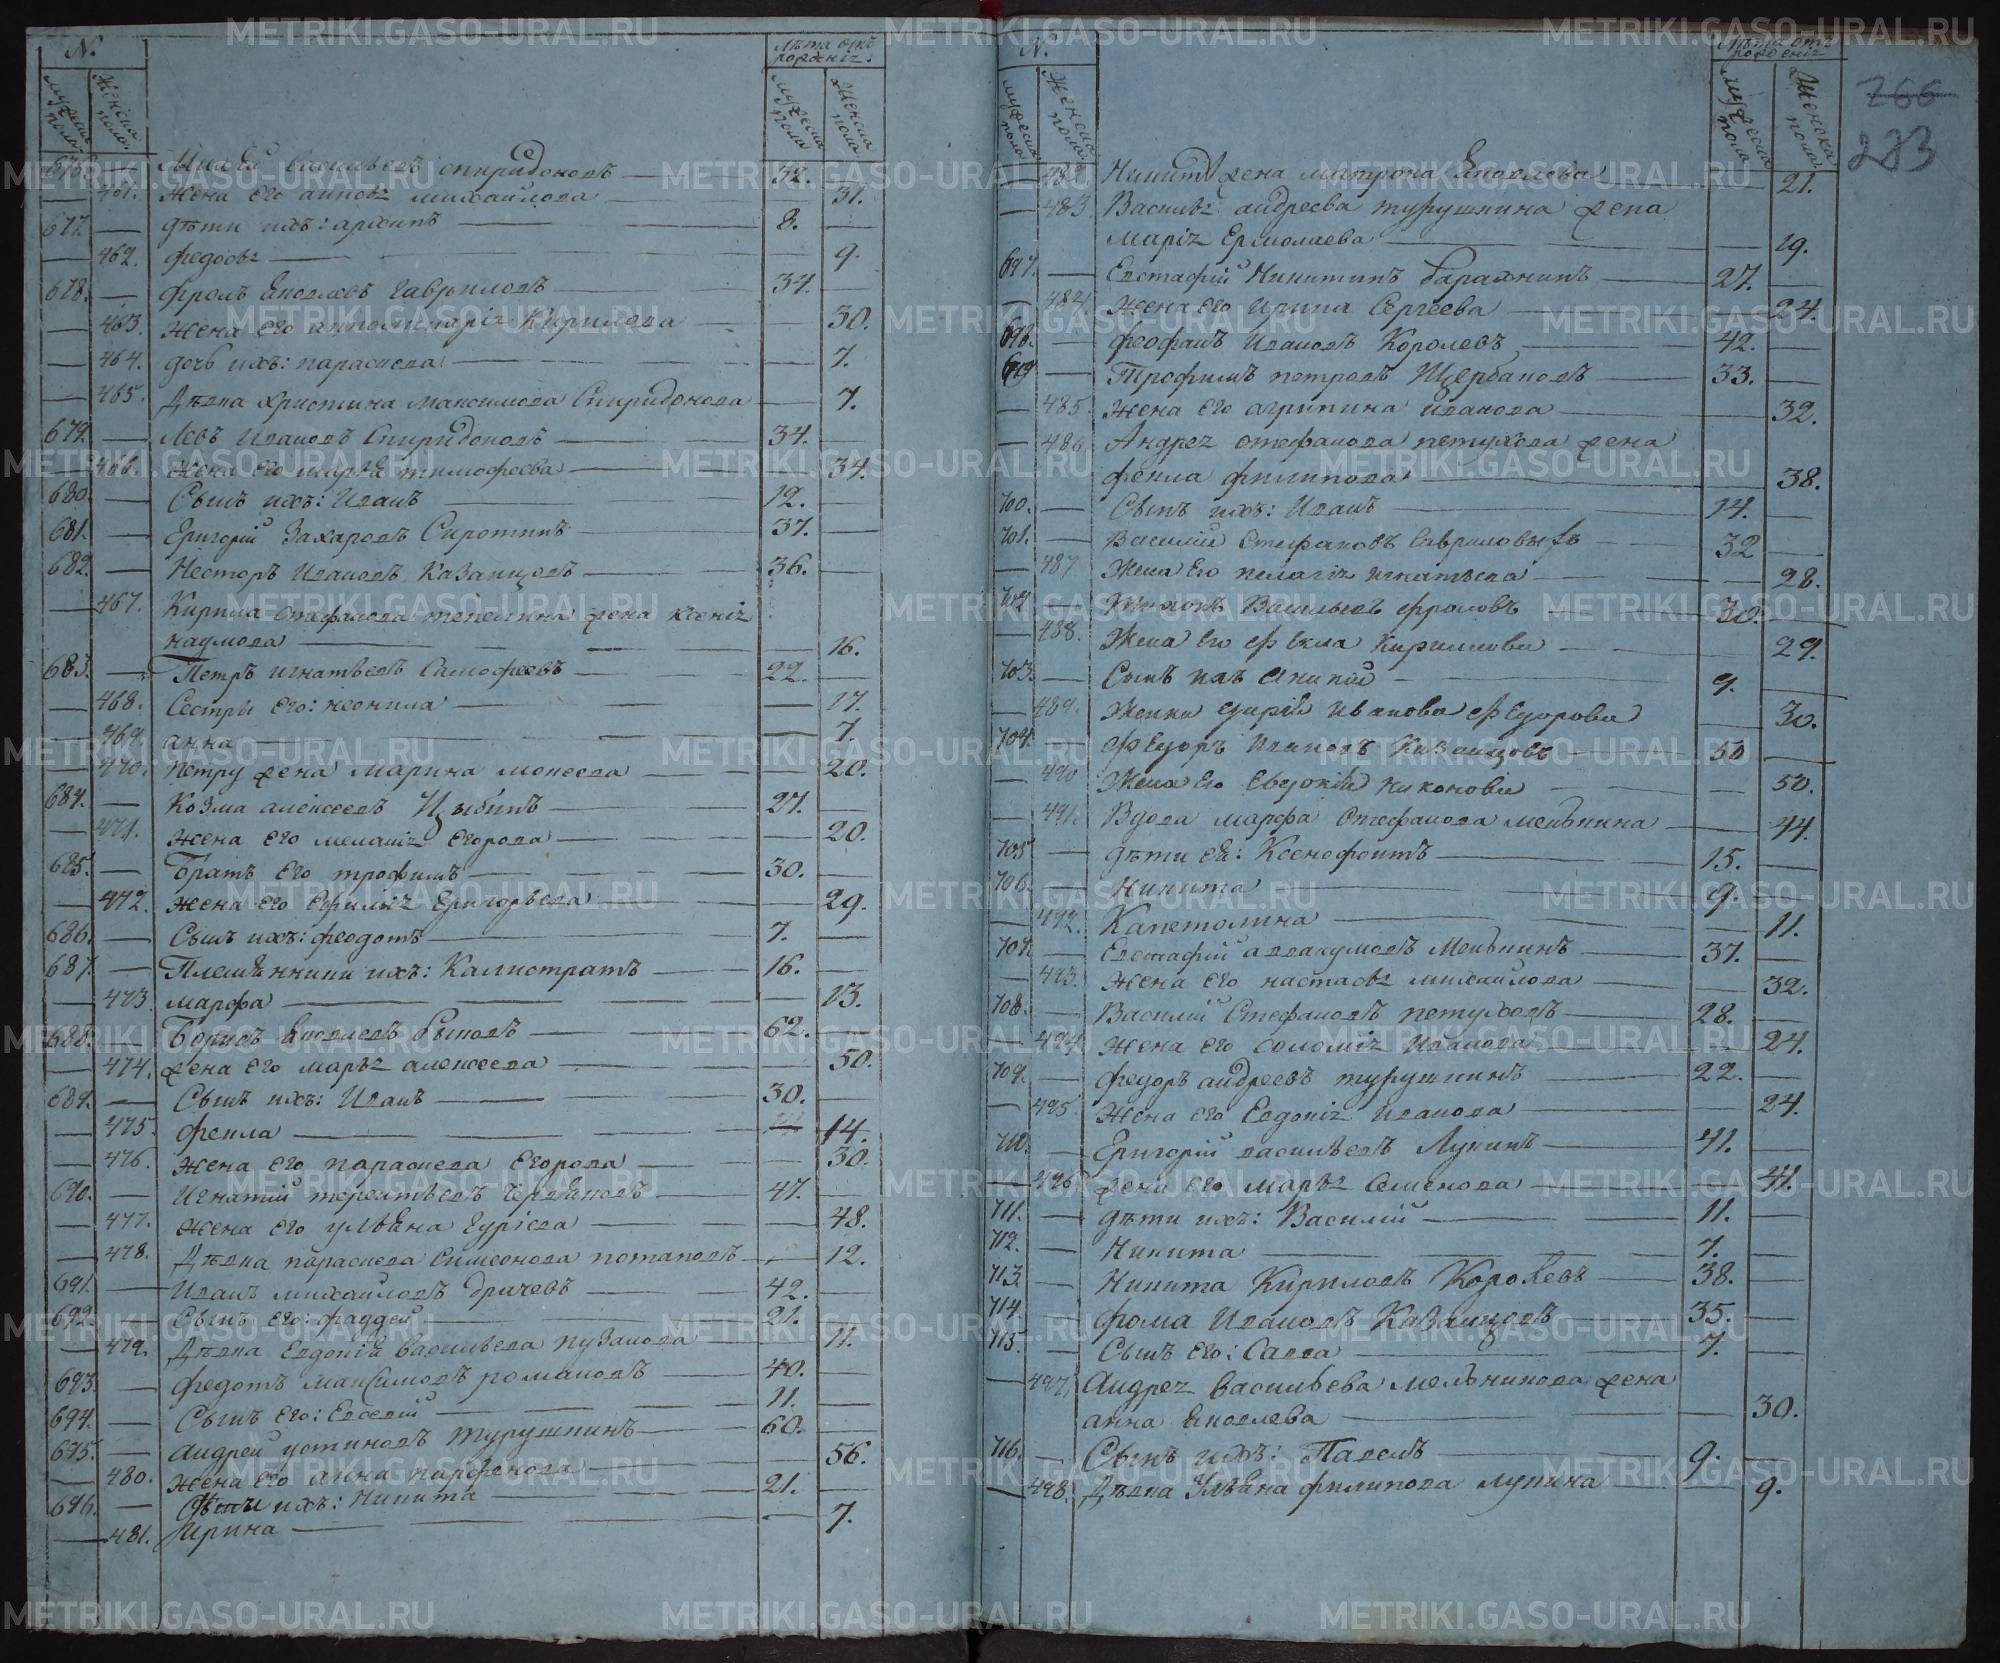 N.
Лѣта отъ рожденіz.
мужеска пола
Женска пола
мужеска пола
Женска пола
676. Васильевъ спиридоновъ 32.
461. Жена его михаилова 31.
677. дѣти ихъ: архипъ 8.
462. федосьz 9.
678. фролъ Яковлевъ Гавриловъ 34.
463. Жена его Кирилова 30.
464. дочь ихъ: парасковья 7.
465. Дѣвка христина максимова Спиридонова 7.
679. Левъ Ивановъ Спиридоновъ 34.
466. Жена его марѳа тимофеева 34.
680. Сынъ ихъ: Иванъ 12.
681. Григорій Захаровъ Сиротинъ 37.
682. Несторъ Ивановъ Казанцовъ 36.
467. Кирила стефанова тепелина жена ксеніz
наумова 16.
683. Петръ игнатьевъ Самофеевъ 22.
468. Сестры его: неонила 17.
469. анна 7.
470. петру жена марина моисеева 20.
684. Козма алексеевъ Цыбинъ 27.
471. Жена его меланіz Егорова 20.
685. Братъ его трофимъ 30.
472. Жена его Ефиміz Григорьева 29.
686. Сынъ ихъ: феодотъ 7.
687. Племѣнники ихъ: Калистратъ 16.
473. марфа 13.
688. Борисъ Яковлевъ Быковъ 62.
474. жена его марьz алексеева 50.
689. Сынъ ихъ: Иванъ 30.
475. фекла 14.
476. Жена его параскева Егорова 30.
690. Игнатій терентьевъ Черваковъ 47.
477. Жена его ульяна Гуріева 48.
478. Дѣвка параскева Симеонова потаповъ 12.
691. Иванъ михаиловъ Грачевъ 42.
692. Сынъ его: фаддей 21.
479. Дѣвка Евдокія васильева пузанова 11.
693. федотъ максимовъ романовъ 40.
694. Сынъ его: Евсевій 11.
695. андрей устиновъ турушкинъ 60.
480. Жена его анна парфенова 56.
696. ихъ: Никита 21.
481. Ирина 7.
N.
Лѣта отъ рожденіz
мужеска пола
Женска пола
мужеска пола
Женска пола
266
283
482. Никиты жена матрона Яковлева 21.
483. Васильz андреева турушкина жена
маріz Ермолаева 19.
697. Евстафій Никитинъ барахнинъ 27.
484. Жена его ирина Сергеева 24.
698. феофанъ Ивановъ Королевъ 42.
699 Трофимъ петровъ Щербаковъ 33.
485. Жена его агрипина иванова 32.
486. Андреz стефанова петухова жена
фекла филипова 38.
700. Сынъ ихъ: Иванъ 14.
701. Василій Стефановъ Гавриловыхъ 32
487. Жена его пелагіz игнатьева 28.
702 Тихонъ Васильевъ фроловъ 30.
488. Жена его Фекла Кириллова 29.
703. Сынъ ихъ 9.
489. Женка Иванова Федорова 30.
704. Федоръ Ивановъ Казанцовъ 50
490 Жена его Евдокія Никонова 50.
491. Вдова марфа Стефанова мельнина 44.
705 дѣти еz: Ксенофонтъ 15.
706. Никита 9.
492. Капетолина 11.
707. Евстафій аввакумовъ Мельнинъ 37.
493. Жена его настасьz михаилова 32.
708. Василій Стефановъ петуховъ 28.
494. Жена его соломіz Иванова 24.
709. федоръ андреевъ турушкинъ 22.
495. Жена его Евдокіz Иванова 24.
710. Григорій васильевъ Лунинъ 41.
496. жена его марьz Семенова 41.
711. дѣти ихъ: Василій 11.
712. Никита 7.
713. Никита Кириловъ Королевъ 38.
714 фома Ивановъ Казанцовъ 35.
715. Сынъ его: Савва 7.
497. Андреz васильева мельникова жена
анна Яковлева 30.
716. Сынъ ихъ: Павелъ 9.
498. Дѣвка Ульяна филипова лунина 9.